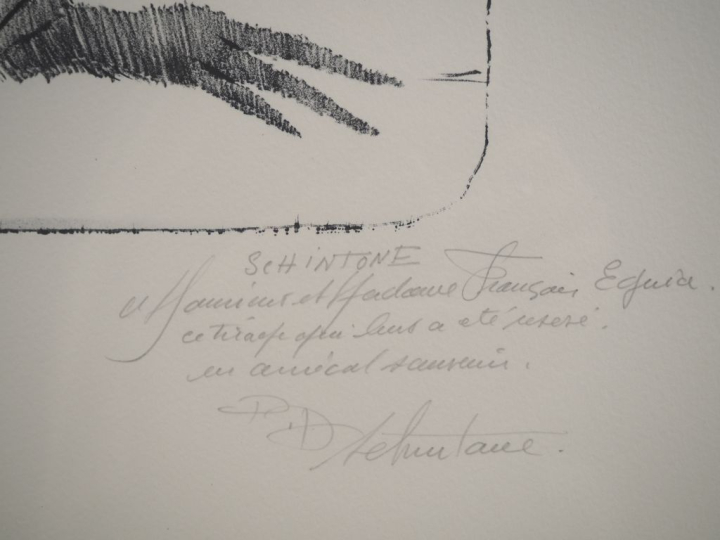 SCHINTONE
à Monsieur et Madame Français Eguia.
ce tirage qui leur a été réservé.
en amical souvenir.
Schintone.